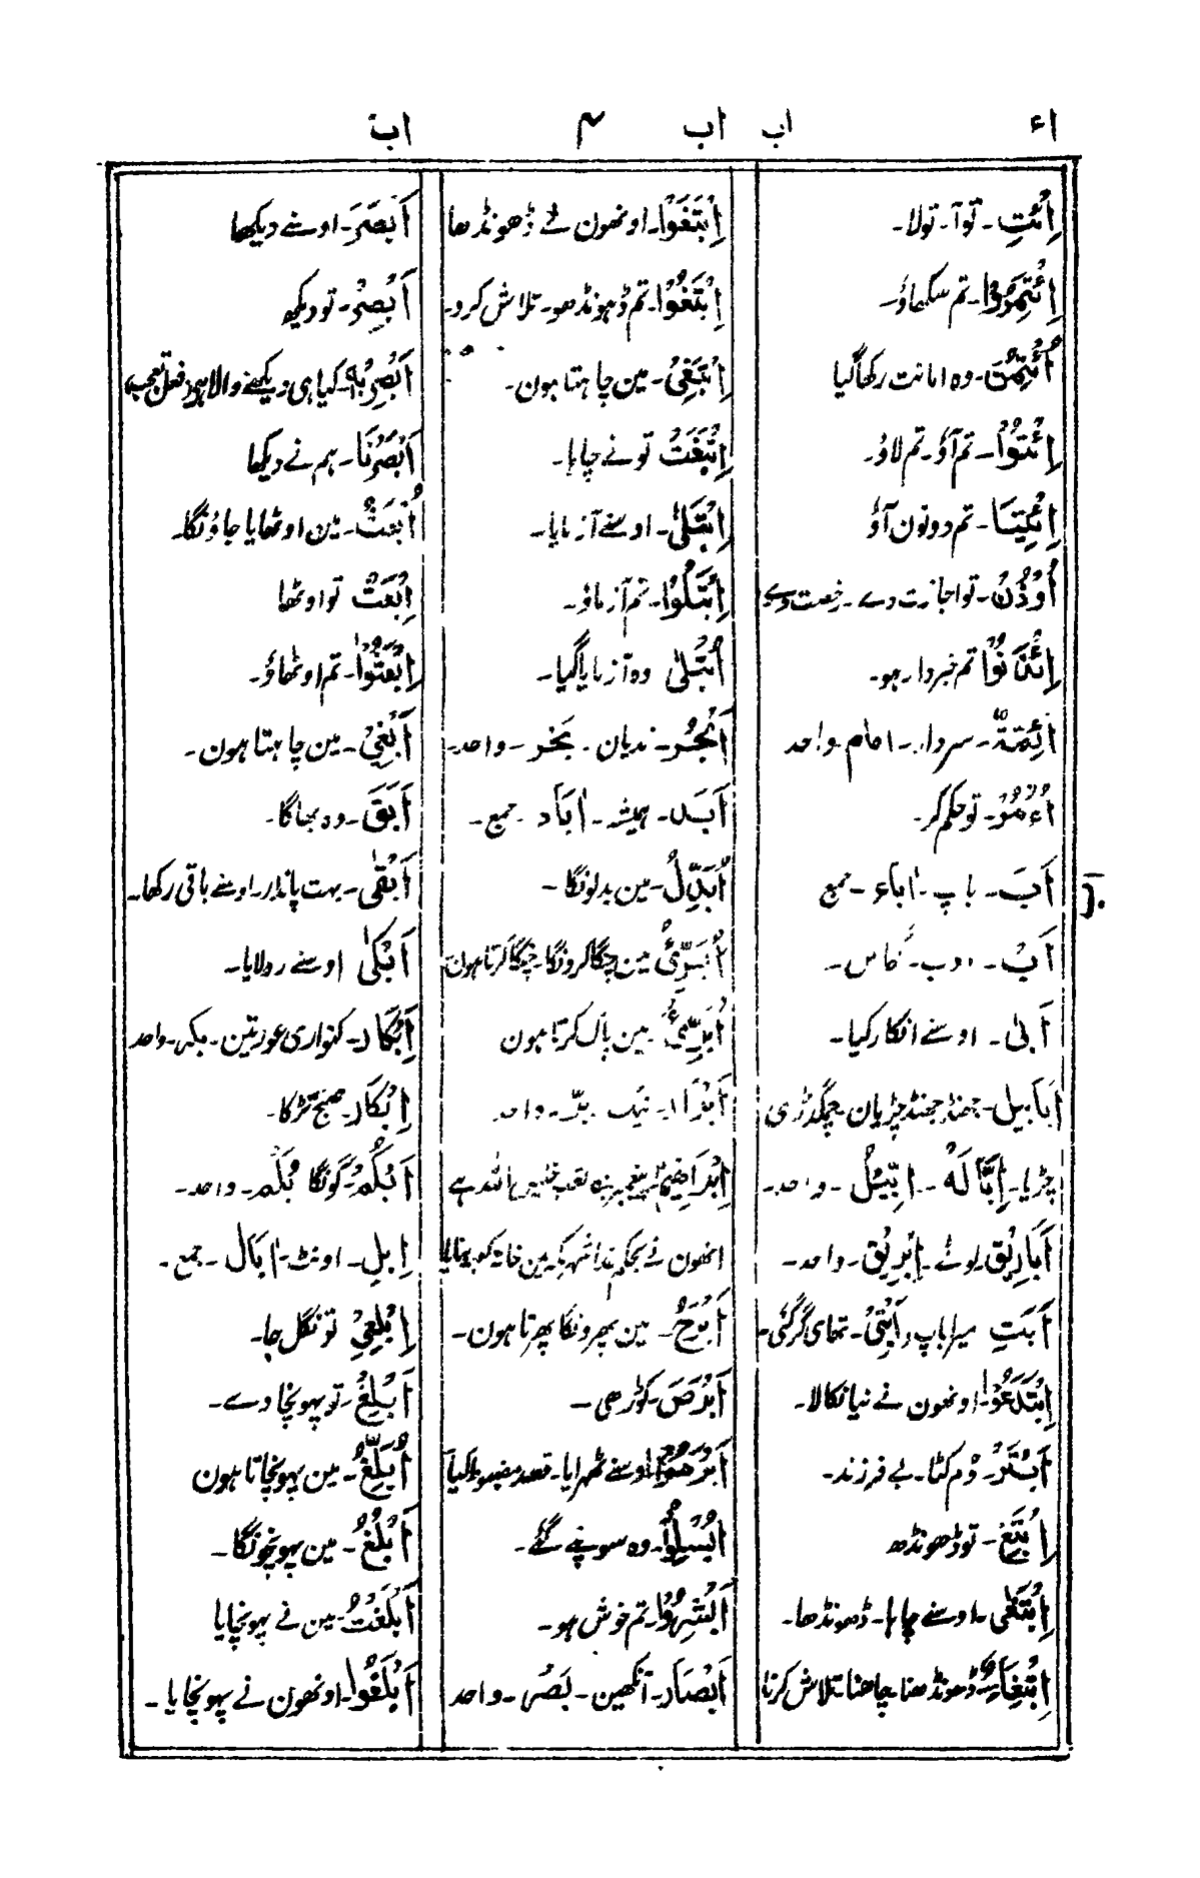 اء اب اب ۴ اب
اِئْتِ۔ تو آ۔ تو لا۔
اِئْتَمِرُوْا۔ تم سکھاؤ۔
اُئْتُمِنَ۔ وہ امانت رکھا گیا
اِئْتُوْا۔ تم آؤ۔ تم لاؤ۔
اِئْتِيَا۔ تم دونون آؤ
اُوْذُنْ۔ تو اجازت دے۔ رخصت دے
اِئْذَنُوْا تم خبردار ہو۔
اَئِمَّةٌ۔ سردار۔ امام۔ واحد
اءْمُرْ۔ تو حکم کر۔
اَبَ۔ باپ۔ اٰباء۔ جمع
اَبّ۔ دوب۔ گھاس۔
اَبیٰ۔ اوسنے انکار کیا۔
اَبَابِیل۔ جھنڈ جھنڈ چڑیان۔ چمگدڑی
چڑیا۔ اِبَّالَهْ۔ اِبِّیْل۔ واحد۔
اَبَارِیْق لوٹے۔ اِبْرِیْق۔ واحد۔
اَبَتِ میرا باپ
اِبْتَدَعُوْا اونھون نے نیا نکالا۔
اَبْتَرْ۔ دُم کٹا۔ بے فرزند۔
اِبْتَغِ۔ تو ڈھونڈھ
اِبْتَغٰی۔ اوسنے چاہا۔ ڈھونڈھا۔
اِبْتِغَاءَ۔ ڈھونڈھنا۔ چاھنا تلاش کرنا
اِبْتَغَوْا۔ اونھون نے ڈھونڈھا
اِبْتَغُوْا۔ تم ڈہونڈھو۔ تلاش کرو۔
اِبْتَغِیْ۔ مین چاہتا ہون۔
اِبْتَغَیْتَ تو نے چاہا۔
اِبْتَلٰی۔ اوسنے آزمایا۔
اِبْتَلُوْا۔ تم آزماؤ۔
اُبْتُلیٰ وہ آزمایا گیا۔
اَبْحُر۔ ندیان۔ بَحْر۔ واحد۔
اَبَد۔ ہمیشہ۔ اٰبَاد۔ جمع۔
اُبَدِّلُ۔ مین بدلونگا۔
اُبَرِّئُ مین چنگا کرونگا۔ چنگا کرتا ہون
اُبَرِّئُ۔ مین پاک کرتا ہون
اَبْرَار۔ نیک۔ بَرّ۔ واحد
اِبْرَاهِیْم۔ پیغمبر ہین لقب خلیل اللہ ہے
انھون نے بحکم خدا شہر مکہ مین خانہ کعبہ بنایا
اَبْرَحُ۔ مین پھرونگا پھرتا ہون۔
اَبْرَصَ۔ کوڑھی۔
اَبْرَمُوْا اوسنے ٹھرایا۔ قصد مضبوط کیا
اُبْسِلُوْا۔ وہ سونپے گئے۔
اَبْشِرُوْا۔ تم خوش ہو۔
اَبْصَار۔ آنکھین۔ بَصَر۔ واحد
اَبْصَرَ۔ اوسنے دیکھا
اَبْصِرْ۔ تو دیکھ
اَبْصِرْ بِهٖ۔ کیا ہی دیکھنے والا ہے فعل تعجب ہے
اَبْصَرْنَا۔ ہم نے دیکھا
اُبْعَثُ۔ مین اوٹھایا جاؤنگا۔
اِبْعَثْ تو اوٹھا
اِبْعَثُوْا۔ تم اوٹھاؤ۔
اَبْغِیْ۔ مین چاہتا ہون۔
اَبَقَ۔ وہ بھاگا۔
اَبْقٰی۔ بہت پائدار۔ اوسنے باقی رکھا۔
اَبْکیٰ اوسنے رولایا۔
اَبْکَار۔ کنواری عورتین۔ بکر۔ واحد
اِبْکَار۔ صبح تڑکا۔
اَبْکَمُ۔ گونگا بُکْم۔ واحد۔
اِبِلِ۔ اونٹ۔ اٰبَال۔ جمع۔
اِبْلَعِیْ تو نگل جا۔
اَبْلِغْ۔ تو پہونچا دے۔
اُبَلِّغُ۔ مین پہونچاتا ہون
اَبْلُغُ۔ مین پہونچونگا۔
اَبْلَغْتُ۔ مین نے پہونچایا
اَبْلَغُوا۔ اونھون نے پہونچایا۔